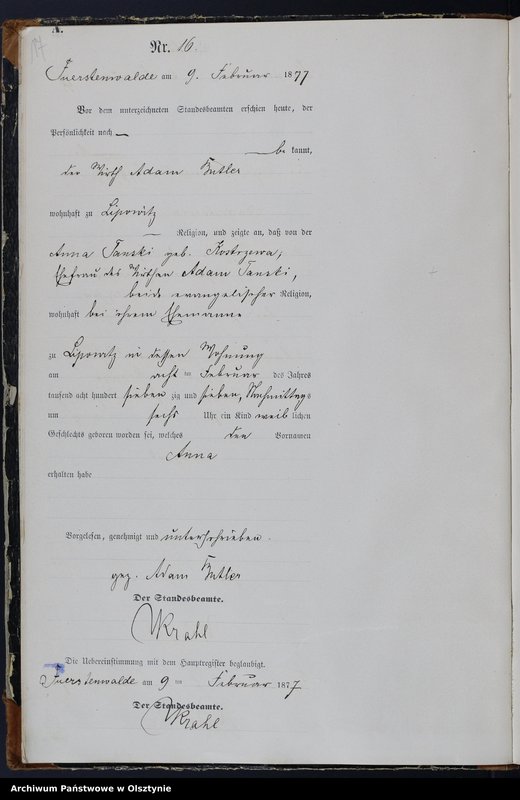 A.
17
Nr. 16.
Fuerstenwalde am 9. Februar 1877
Vor dem unterzeichneten Standesbeamten erschien heute, der
Persönlichkeit nach
be kannt,
der Wirth Adam Butler
wohnhaft zu Lipowitz
Religion, und zeigte an, daß von der
Anna Tanski geb. Kostrzewa,
Ehefrau des Wirthen Adam Tanski,
beide evangelischer Religion,
wohnhaft bei ihrem Ehemanne
zu Lipowitz in dessen Wohnung
am acht ten Februar des Jahres
tausend acht hundert sieben zig und sieben, Nachmittags
um sechs Uhr ein Kind weib lichen
Geschlechts geboren worden sei, welches den Vornamen
Anna
erhalten habe
Vorgelesen, genehmigt und unterschrieben.
gez. Adam Butler
Der Standesbeamte.
Krahl
Die Uebereinstimmung mit dem Hauptregister beglaubigt.
Fuerstenwalde am 9 ten Februar 1877
Der Standesbeamte.
Krahl
Archiwum Państwowe w Olsztynie